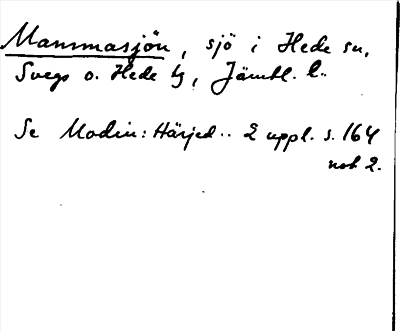 Mammasjön, sjö i Hede sn,
Svegs o. Hede tg, Jämtl. l.
Se Modin: Härjed.. 2 uppl. s. 164
not 2.